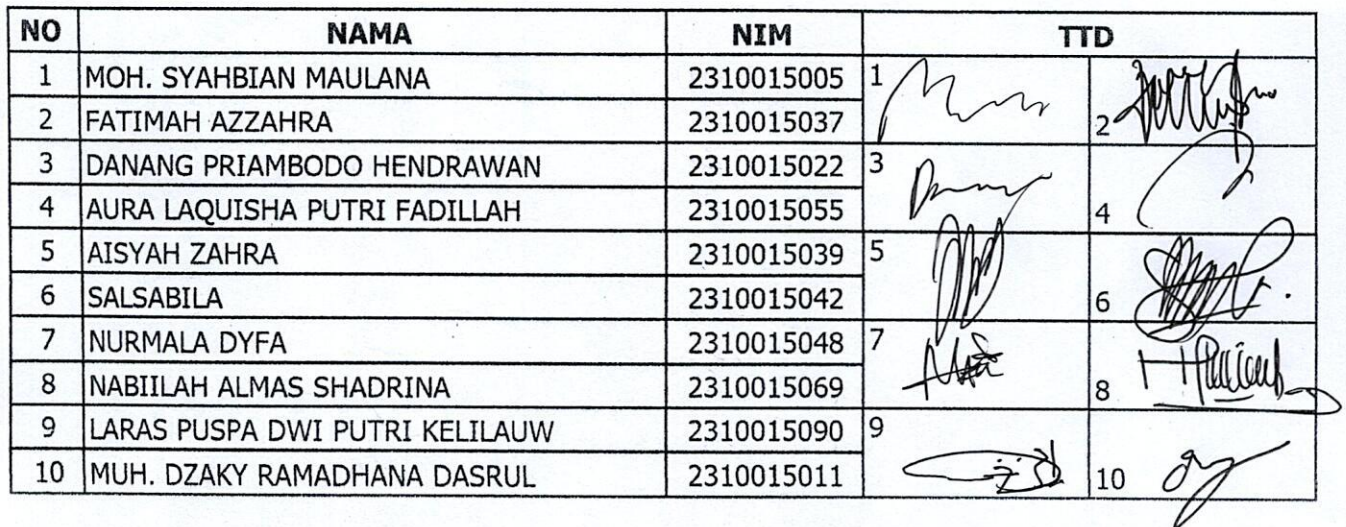 NO NAMA NIM TTD
1 MOH. SYAHBIAN MAULANA 2310015005 1
2 FATIMAH AZZAHRA 2310015037 2
3 DANANG PRIAMBODO HENDRAWAN 2310015022 3
4 AURA LAQUISHA PUTRI FADILLAH 2310015055 4
5 AISYAH ZAHRA 2310015039 5
6 SALSABILA 2310015042 6
7 NURMALA DYFA 2310015048 7
8 NABIILAH ALMAS SHADRINA 2310015069 8
9 LARAS PUSPA DWI PUTRI KELILAUW 2310015090 9
10 MUH. DZAKY RAMADHANA DASRUL 2310015011 10